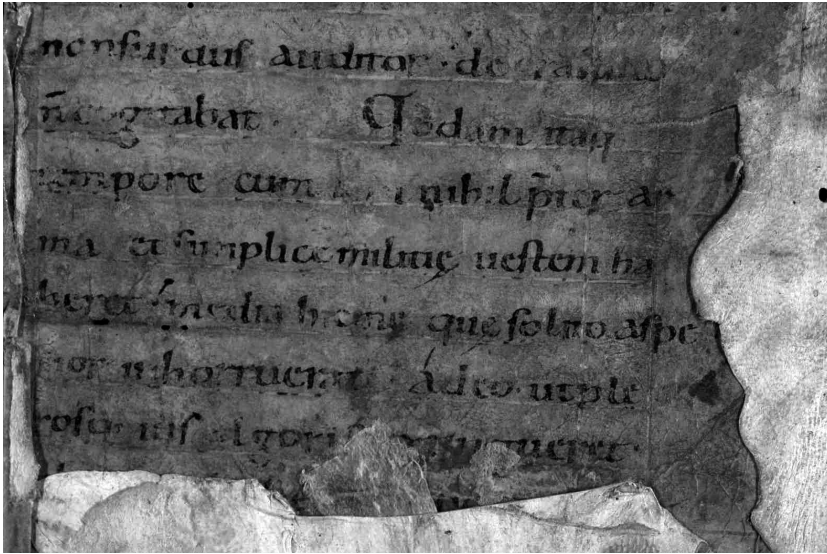 non surdus auditor · de crastino
n̄ cogitabat · Qodam itaq
tempore cum nihil p̄ter ar
ma et simplice militię uestem ha
beret · media hieme quę solito aspe
rior inhorruerat · Adeo ut ple
rosq uis algoris extingueret ·